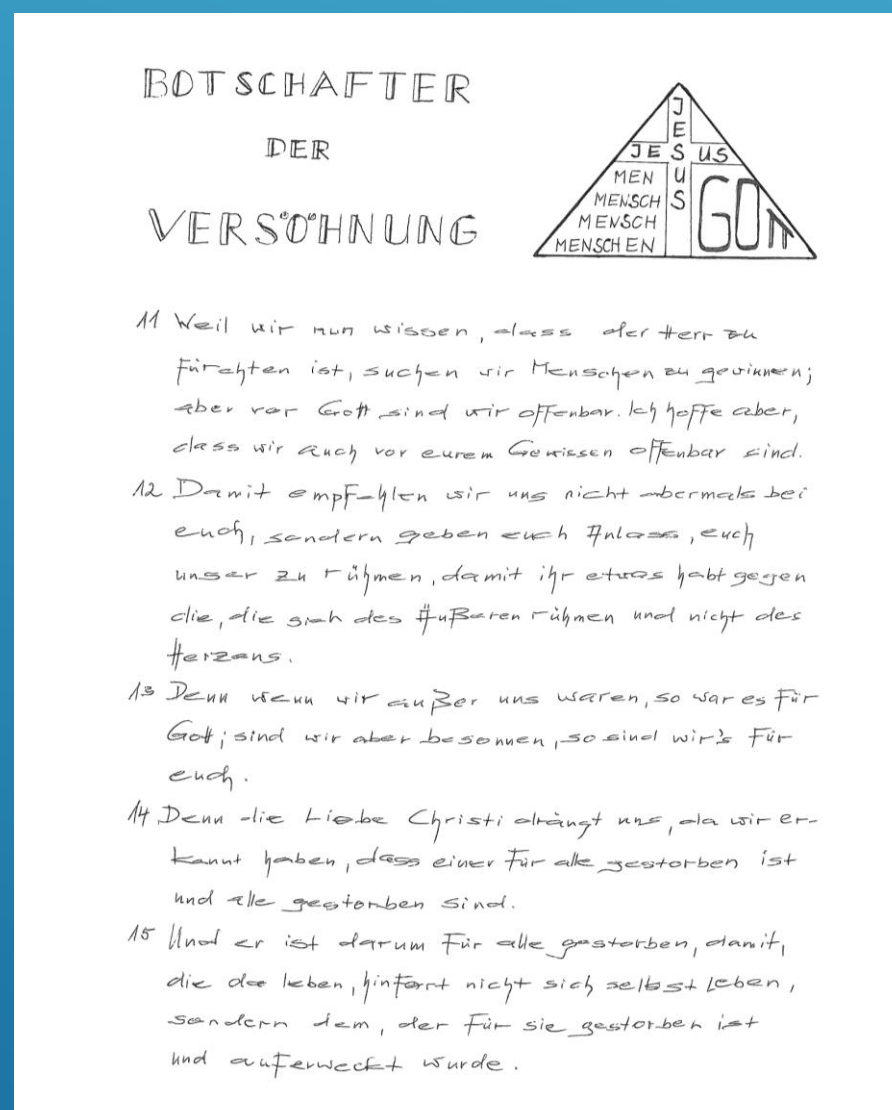 BOTSCHAFTER
DER
VERSÖHNUNG
JESUS
JESUS
MEN
MENSCH
MENSCH
MENSCHEN
GOTT
11 Weil wir nun wissen, dass der Herr zu
fürchten ist, suchen wir Menschen zu gewinnen;
aber vor Gott sind wir offenbar. Ich hoffe aber,
dass wir auch vor eurem Gewissen offenbar sind.
12 Damit empfehlen wir uns nicht abermals bei
euch, sondern geben euch Anlass, euch
unser zu rühmen, damit ihr etwas habt gegen
die, die sich des Äußeren rühmen und nicht des
Herzens.
13 Denn wenn wir außer uns waren, so war es für
Gott; sind wir aber besonnen, so sind wir's für
euch.
14 Denn die Liebe Christi drängt uns, da wir er-
kannt haben, dass einer für alle gestorben ist
und alle gestorben sind.
15 Und er ist darum für alle gestorben, damit,
die da leben, hinfort nicht sich selbst leben,
sondern dem, der für sie gestorben ist
und auferweckt wurde.